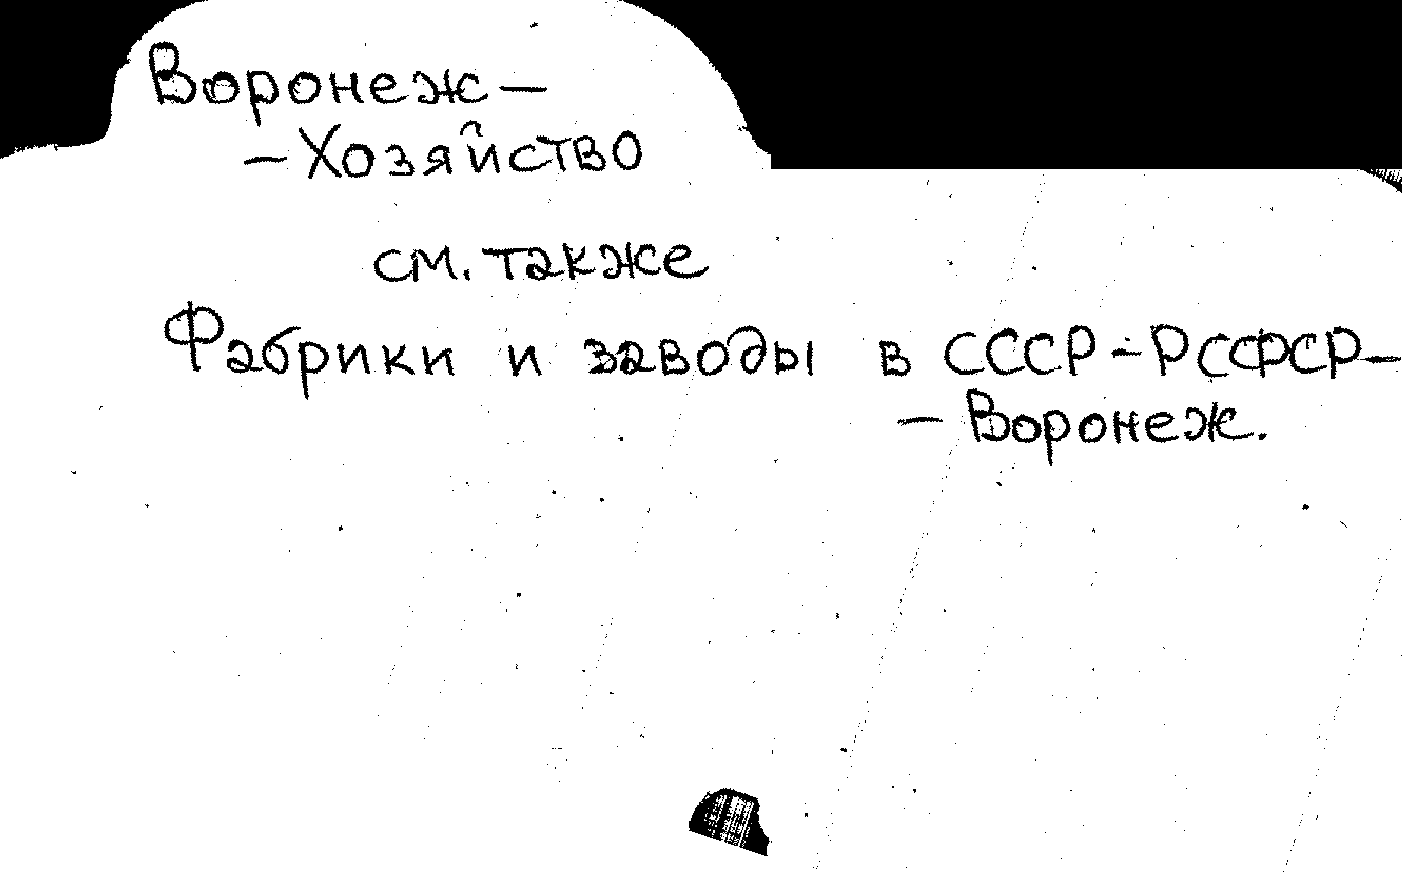 Воронеж —
— Хозяйство
см. также
Фабрики и заводы в СССР - РСФСР —
— Воронеж.